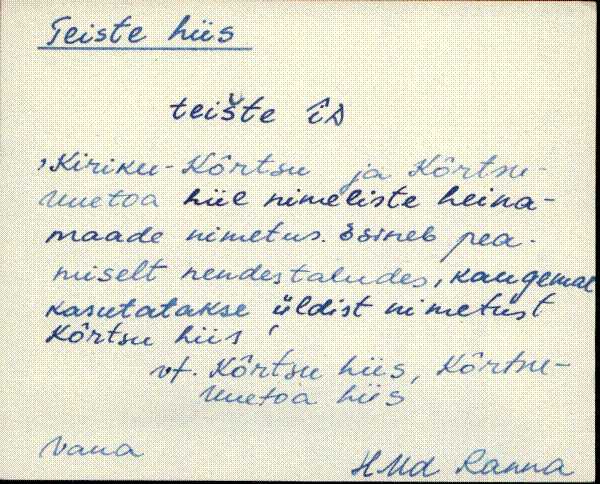 Teiste hiis
teište îs
‚Kiriku-Kôrtsu ja Kôrtsu-
Uuetoa hiie nimeliste heina-
maade nimetus. Esineb pea-
miselt nendes taludes, kaugemal
kasutatakse üldist nimetust
Kôrtsu hiis‘
vt. Kôrtsu hiis, Kôrtsu-
Uuetoa hiis
Vana
HMd Ranna